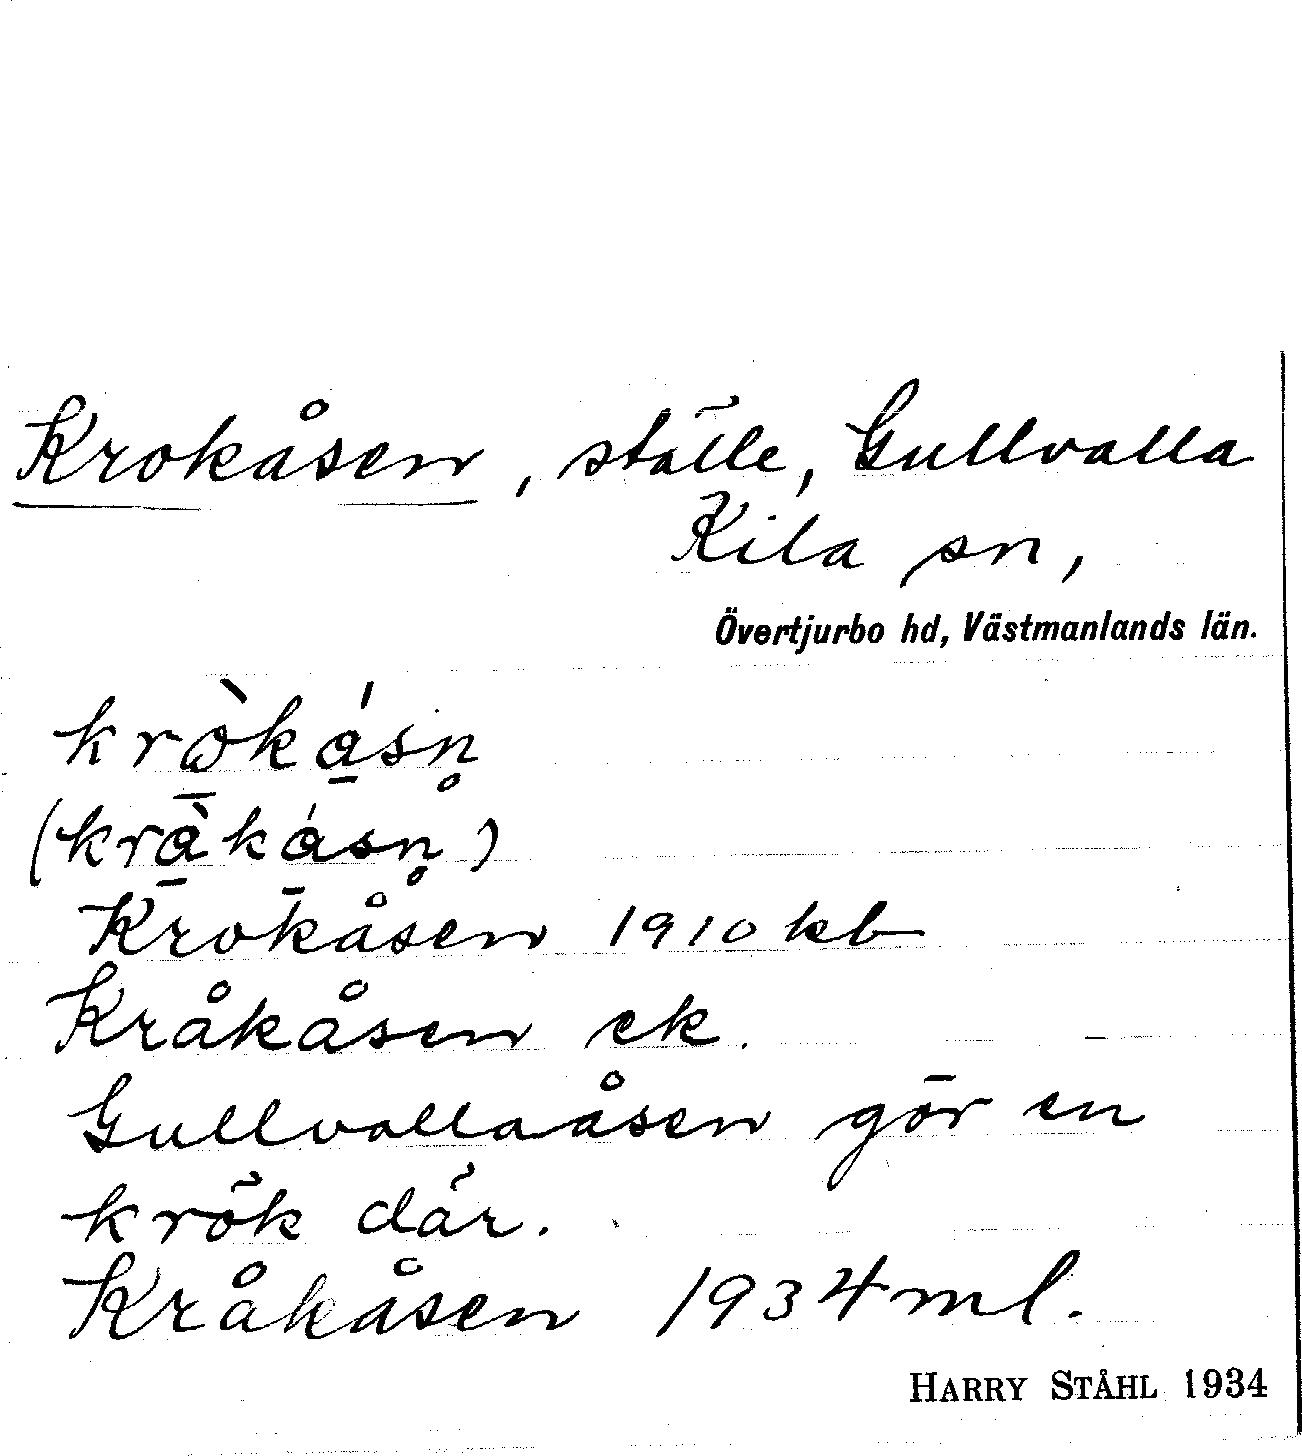 Krokåsen, ställe, Gullvalla
Kila sn,
Övertjurbo hd, Västmanlands län.
krò̱ká̱sn̥
(krà̱ká̱sn̥)
Krokåsen 1910 kb
Kråkåsen ek.
Gullvallaåsen gör en
krök där.
Kråkåsen 1934 ml.
HARRY STÅHL 1934